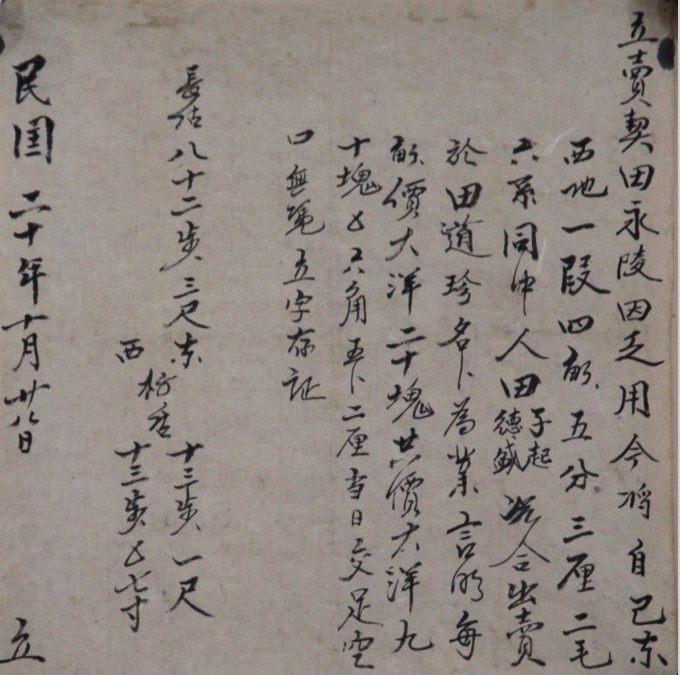 立賣契田永陵因乏用今將自己东
西地一段四畝五分三厘二毛
六系同中人田子起德盛说合出賣
於田道珍名卜為業言明每
畝價大洋二十塊共價大洋九
十塊六角五卜二厘当日交足空
口無凴立字存証
長活八十二步三尺东十三步一尺
西十三步七寸
民国二十年十月廿八日 立